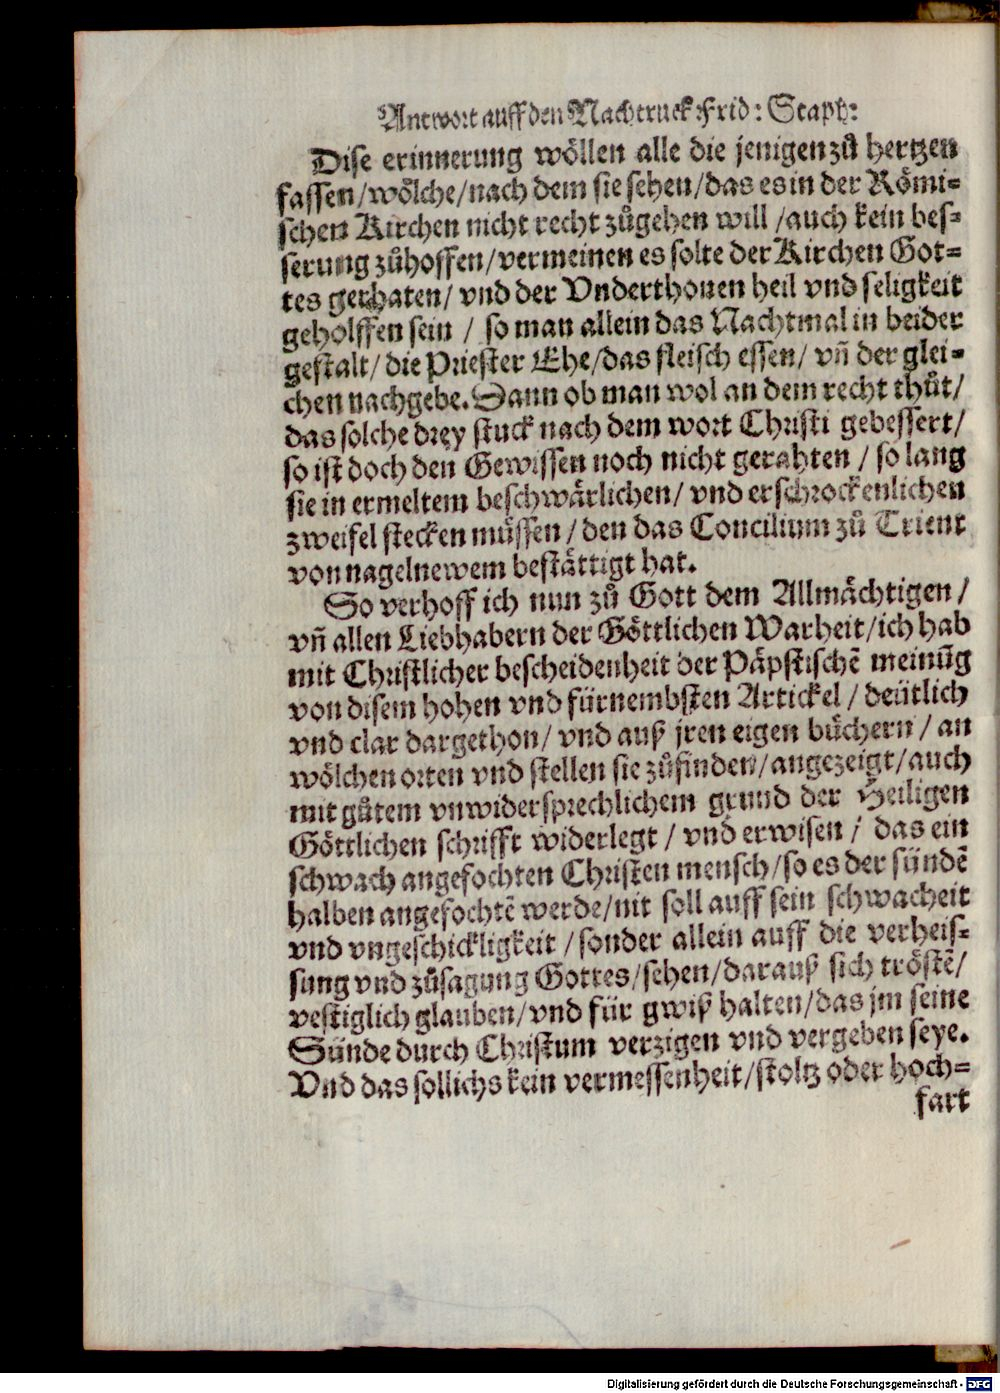 Antwort auff den Nachtruck Frid: Staph:
Dise erinnerung wöllen alle die jenigen zů hertzen
fassen/wölche/nach dem sie sehen/das es in der Römi=
schen Kirchen nicht recht zůgehen will /auch kein bes=
serung zůhoffen/vermeinen es solte der Kirchen Got=
tes gerhaten/ vnd der Vnderthonen heil vnd seligkeit
geholffen sein / so man allein das Nachtmal in beider
gestalt/ die Priester Ehe/das fleisch essen/ vñ der glei=
chen nachgebe. Dann ob man wol an dem recht thůt/
das solche drey stuck nach dem wort Christi gebessert/
so ist doch den Gewissen noch nicht gerahten / so lang
sie in ermeltem beschwärlichen/ vnd erschrockenlichen
zweifel stecken müssen / den das Concilium zů Trient
von nagelnewem bestättigt hat.
So verhoff ich nun zů Gott dem Allmächtigen /
vñ allen Liebhabern der Göttlichen Warheit/ich hab
mit Christlicher bescheidenheit der Päpstischẽ meinũg
von disem hohen vnd fürnembsten Artickel / deütlich
vnd clar dargethon/ vnd auß jren eigen büchern / an
wölchen orten vnd stellen sie zůfinden/angezeigt/auch
mit gůtem vnwidersprechlichem grund der Heiligen
Göttlichen schrifft widerlegt / vnd erwisen / das ein
schwach angefochten Christen mensch/so es der sündẽ
halben angefochtẽ werde/nit soll auff sein schwacheit
vnd vngeschickligkeit /sonder allein auff die verheis=
sung vnd zůsagung Gottes/sehen/darauß sich tröstẽ/
vestiglich glauben/vnd für gwiß halten/das jm seine
Sünde durch Christum verzigen vnd vergeben seye.
Vnd das sollichs kein vermessenheit/stoltz oder hoch=
fart
Digitalisierung gefördert durch die Deutsche Forschungsgemeinschaft - DFG